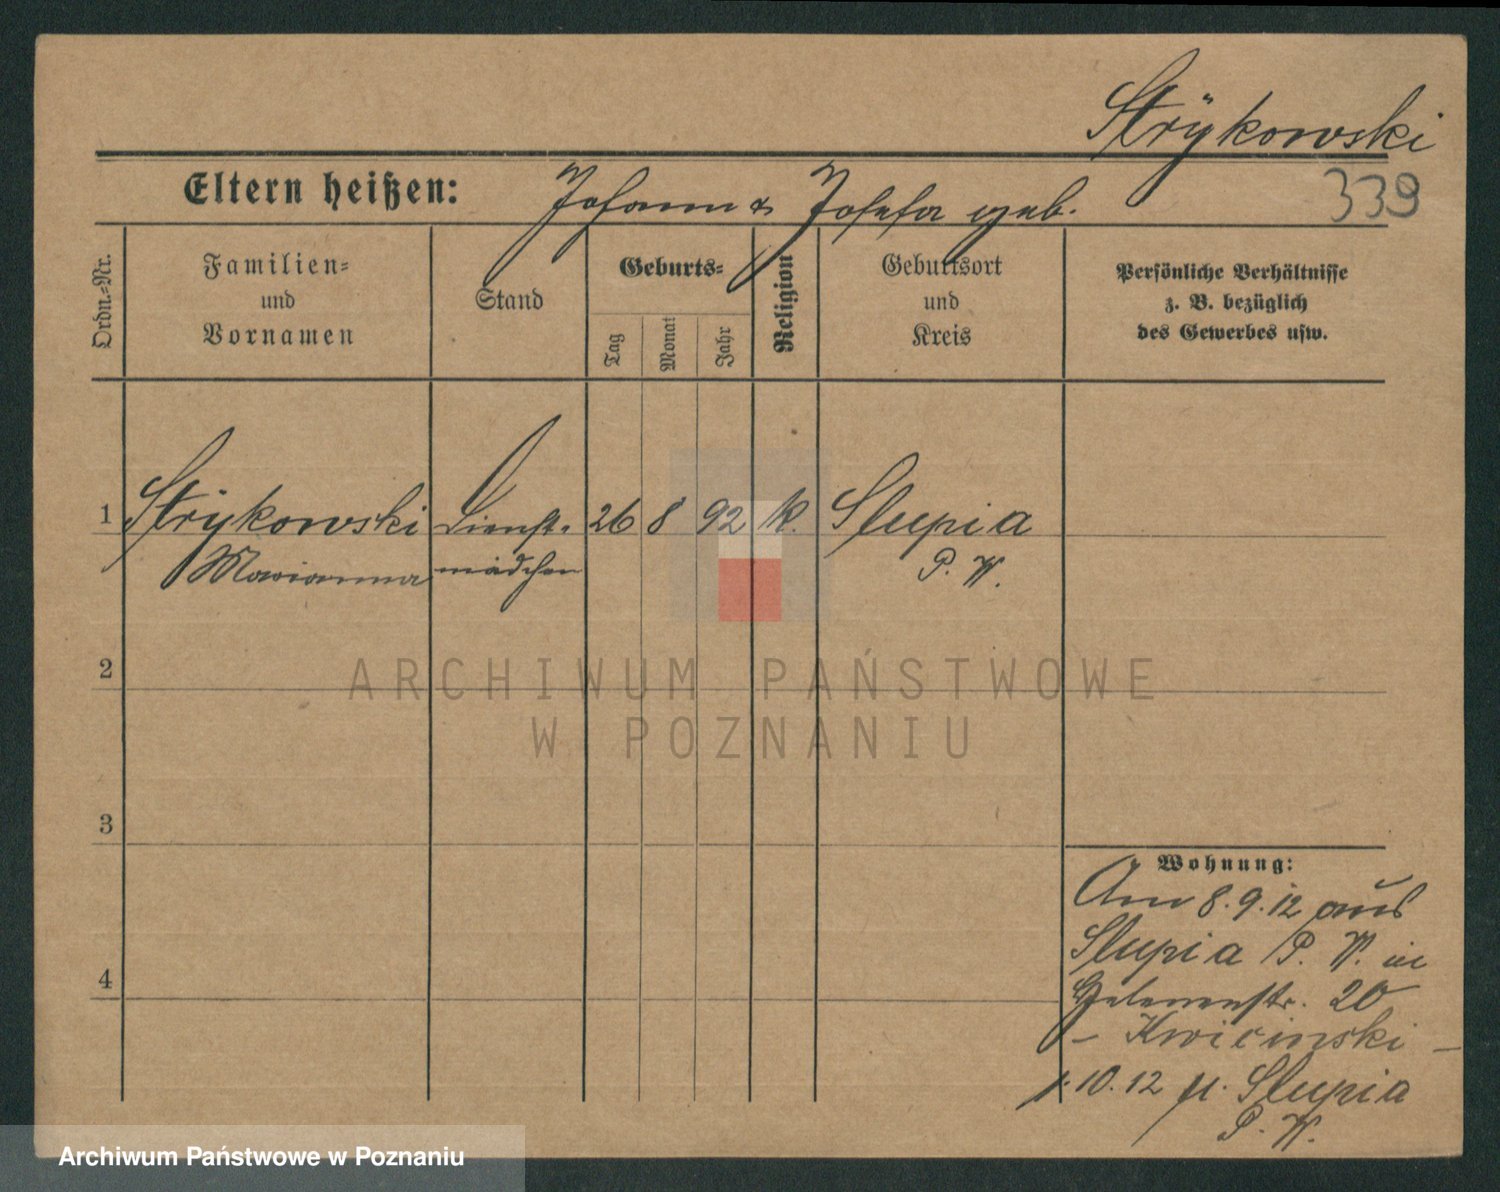 Strÿkowski
339
Eltern heißen: Johann & Josefa geb.
Ordn.=Nr.
Familien=
und
Vornamen
Stand
Geburts=
Tag
Monat
Jahr
Religion
Geburtsort
und
Kreis
Persönliche Verhältnisse
z. B. bezüglich
des Gewerbes usw.
1 Strÿkowski Dienst= 26 8 92 k. Slupia
Marianna mädchen P. W.
2
3
4
Wohnung:
Am 8.9.12 aus
Slupia P. W. in
20
– Kwicinski –
1.10.12 n. Slupia
P. W.
ARCHIWUM PAŃSTWOWE
W POZNANIU
Archiwum Państwowe w Poznaniu